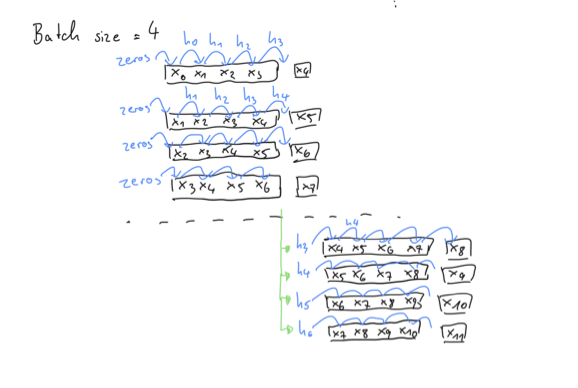 Batch size = 4
h0 h1 h2 h3
zeros x0 x1 x2 x3 x4
h1 h2 h3 h4
zeros x1 x2 x3 x4 x5
zeros x2 x3 x4 x5 x6
zeros x3 x4 x5 x6 x7
h4
h3 x4 x5 x6 x7 x8
h4 x5 x6 x7 x8 x9
h5 x6 x7 x8 x9 x10
h6 x7 x8 x9 x10 x11